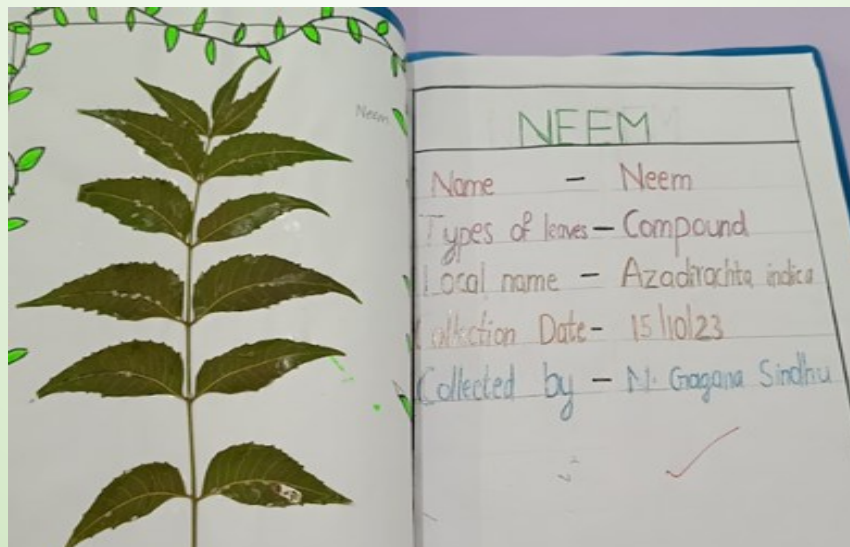 Neem
NEEM
Name - Neem
Types of leaves - Compound
Local name - Azadirachta indica
Collection Date - 15/10/23
Collected by - N. Gagana Sindhu